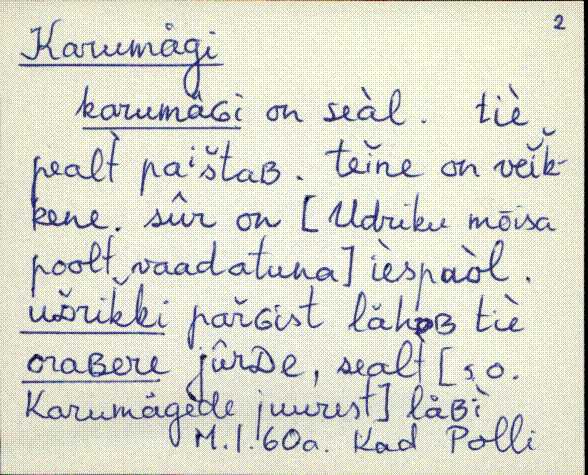 2
Karumägi
karumäGi on seàl. tiè
pealt̀ paⁱštaB. teĭne on veĭk̆-
kene. sûr on [Udriku mõisa
poolt vaadatuna] ìespaòl.
uD̆rikki pařGist lähäB tiè
oraBere jûrDe, sealt̀ [s.o.
Karumägede juurest] läBì
M.I.60a. Kad Polli